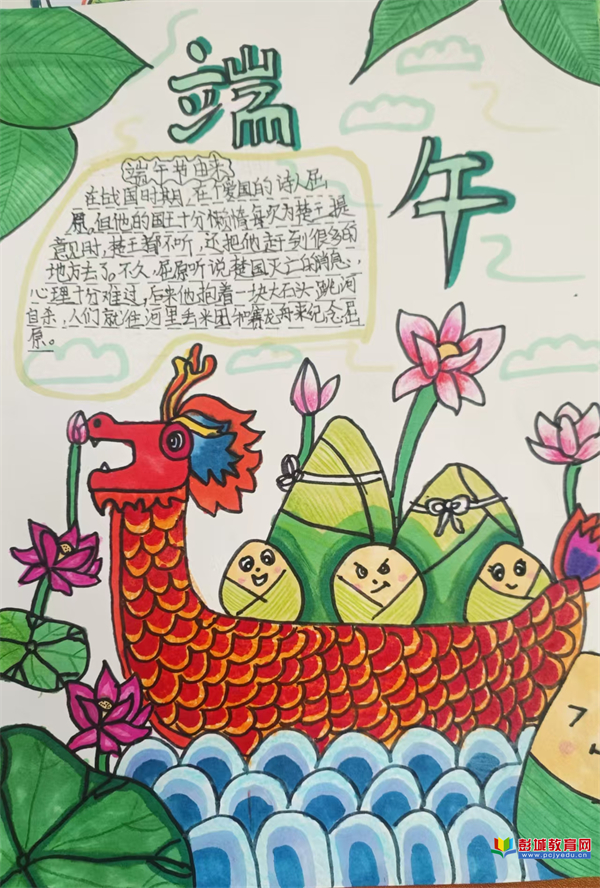 端午
端午节由来
在战国时期,在个爱国的诗人屈
原。但他的国王十分懒惰每次为楚王提
意见时,楚王都不听,还把他赶到很多的
地方去了。不久,屈原听说楚国灭亡的消息,
心理十分难过,后来他抱着一块大石头跳河
自杀,人们就往河里丢米团和赛龙舟来纪念屈
原。
彭城教育网
www.pcjyedu.cn